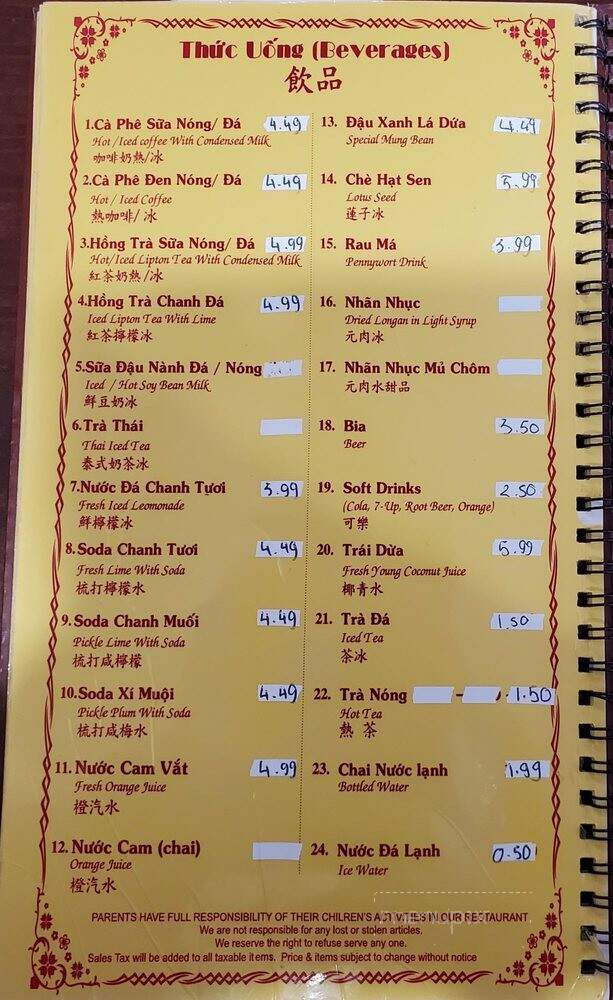 Thức Uống (Beverages)
飲品
1.Cà Phê Sữa Nóng/ Đá 4.49
Hot /Iced coffee With Condensed Milk
咖啡奶熱/冰
2.Cà Phê Đen Nóng/ Đá 4.49
Hot / Iced Coffee
熱咖啡/ 冰
3.Hồng Trà Sữa Nóng/ Đá 4.99
Hot/Iced Lipton Tea With Condensed Milk
紅茶奶熱/冰
4.Hồng Trà Chanh Đá 4.99
Iced Lipton Tea With Lime
紅茶檸檬冰
5.Sữa Đậu Nành Đá / Nóng
Iced / Hot Soy Bean Milk
鮮豆奶冰
6.Trà Thái
Thai Iced Tea
泰式奶茶冰
7.Nước Đá Chanh Tươi 3.99
Fresh Iced Leomonade
鮮檸檬冰
8. Soda Chanh Tươi 4.49
Fresh Lime With Soda
梳打檸檬水
9. Soda Chanh Muối 4.49
Pickle Lime With Soda
梳打咸檸檬
10. Soda Xí Muội 4.49
Pickle Plum With Soda
梳打咸梅水
11. Nước Cam Vắt 4.99
Fresh Orange Juice
橙汽水
12. Nước Cam (chai)
Orange Juice
橙汽水
13. Đậu Xanh Lá Dứa 4.49
Special Mung Bean
14. Chè Hạt Sen 5.99
Lotus Seed
蓮子冰
15. Rau Má 3.99
Pennywort Drink
16. Nhãn Nhục
Dried Longan in Light Syrup
元肉冰
17. Nhãn Nhục Mủ Chôm
元肉水甜品
18. Bia 3.50
Beer
19. Soft Drinks 2.50
(Cola, 7-Up, Root Beer, Orange)
可樂
20. Trái Dừa 5.99
Fresh Young Coconut Juice
椰青水
21. Trà Đá 1.50
Iced Tea
茶冰
22. Trà Nóng - 1.50
Hot Tea
熱 茶
23. Chai Nước lạnh 1.99
Bottled Water
24. Nước Đá Lạnh 0.50
Ice Water
PARENTS HAVE FULL RESPONSIBILITY OF THEIR CHILREN'S ACTIVITIES IN OUR RESTAURANT
We are not responsible for any lost or stolen articles.
We reserve the right to refuse serve any one.
Sales Tax will be added to all taxable items. Price & items subject to change without notice